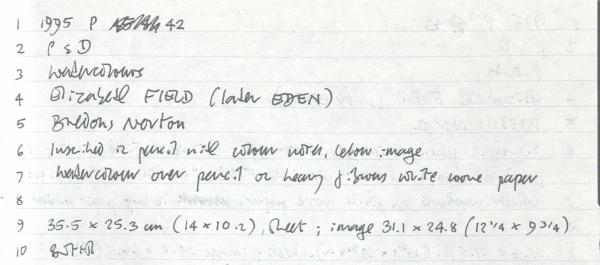 1 1995 P 42
2 P & D
3 Watercolours
4 Elizabeth FIELD (later EDEN)
5 Bredons Norton
6 Inscribed in pencil with colour notes, below image
7 Watercolour over pencil on heavy fibrous white wove paper
8
9 35.5 x 25.3 cm (14 x 10.2), sheet ; image 31.1 x 24.8 (12 1/4 x 9 3/4)
10